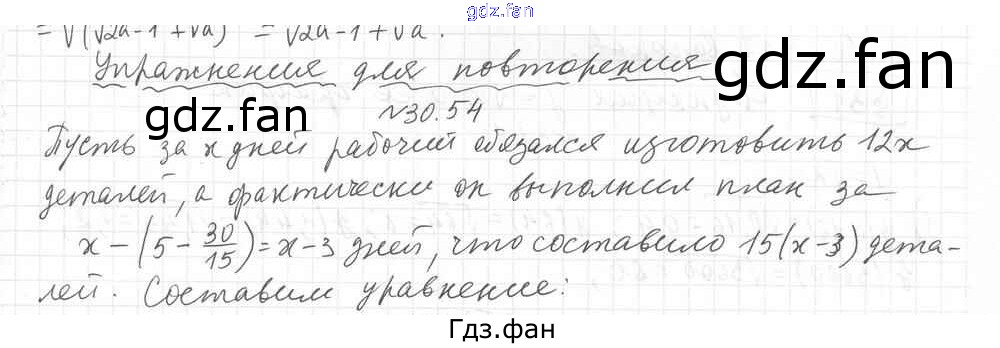 gdz.fan
= √(√2a-1 + √a) = √2a-1 + √a.
Упражнения для повторения
gdz.fan
gdz.fan
№30.54
Пусть за x дней рабочий обязался изготовить 12x
деталей, а фактически он выполнил план за
x - (5 - 30/15) = x - 3 дней, что составило 15(x-3) дета-
лей. Составим уравнение:
Гдз.фан